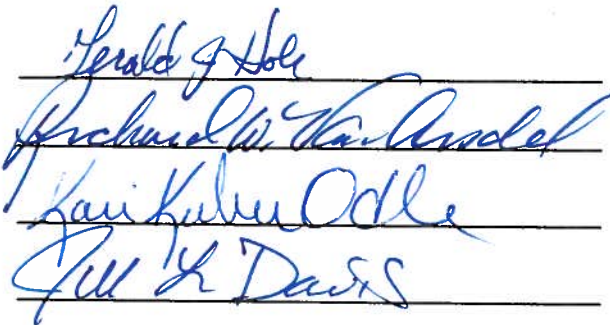 Gerald J Hole
Richard W. Van Arsdel
Kari Odle
Jill L Davis